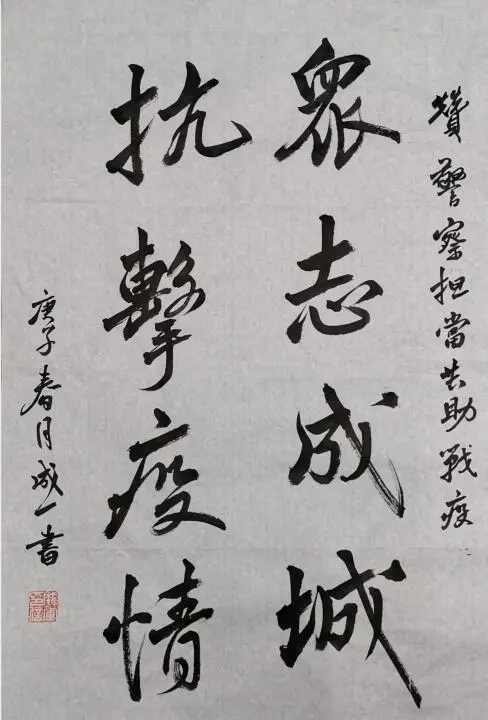 贊警察担當共助戰疫
衆志成城
抗擊疫情
庚子春月成一書